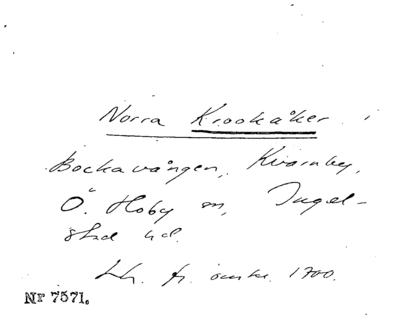 Norra Krookåker i
Bockavången, Kvarnby,
Ö. Hoby sn, Ingel-
stad hd.
Lh. fr. omkr. 1700.
Nr 7571.